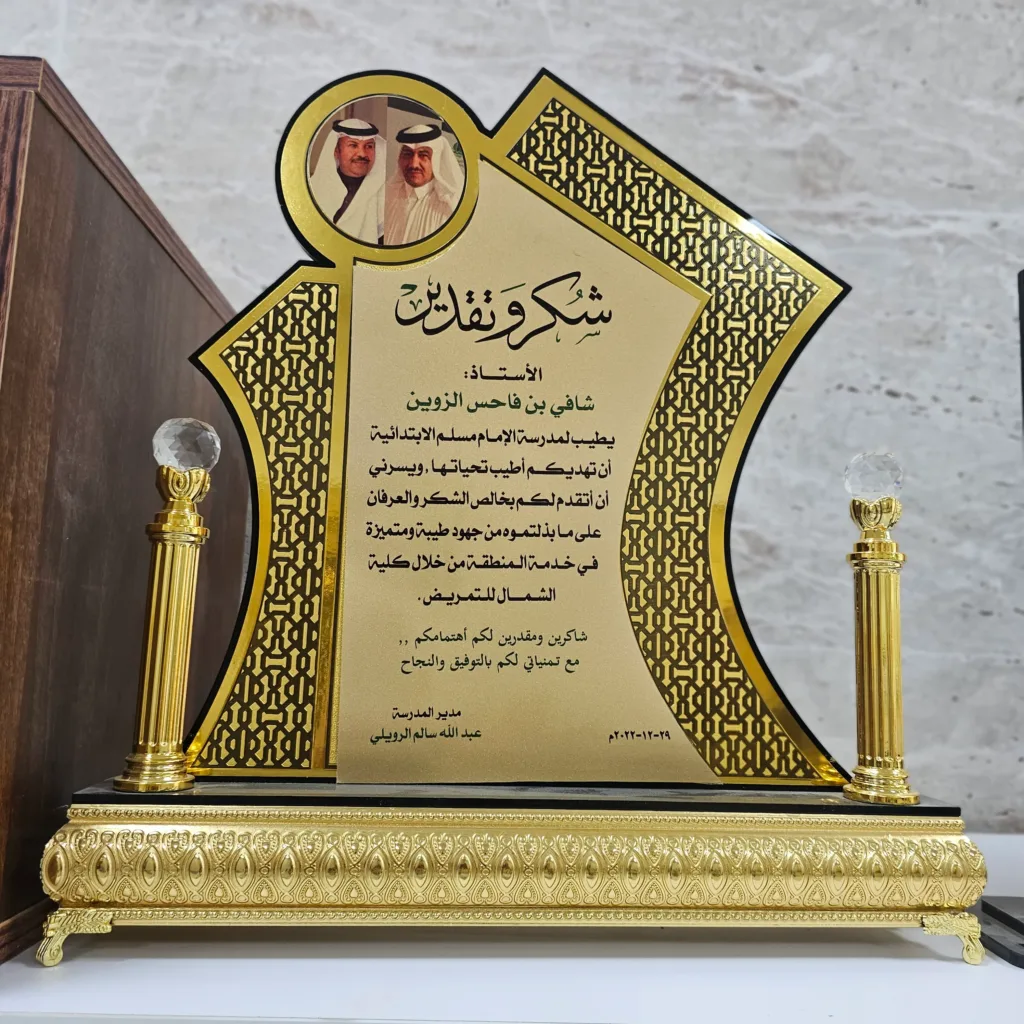 شكر وتقدير
الأستــاذ:
شافي بن فاحس الزوين
يطيب لمدرسة الإمام مسلم الابتدائية
أن تهديكم أطيب تحياتها، ويسرني
أن أتقدم لكم بخالص الشكر والعرفان
على ما بذلتموه من جهود طيبة ومتميزة
في خدمة المنطقة من خلال كلية
الشمال للتمريض.
شاكرين ومقدرين لكم أهتمامكم ,,
مع تمنياتي لكم بالتوفيق والنجاح
مدير المدرسة
عبد الله سالم الرويلي
٢٩-١٢-٢٠٢٢م